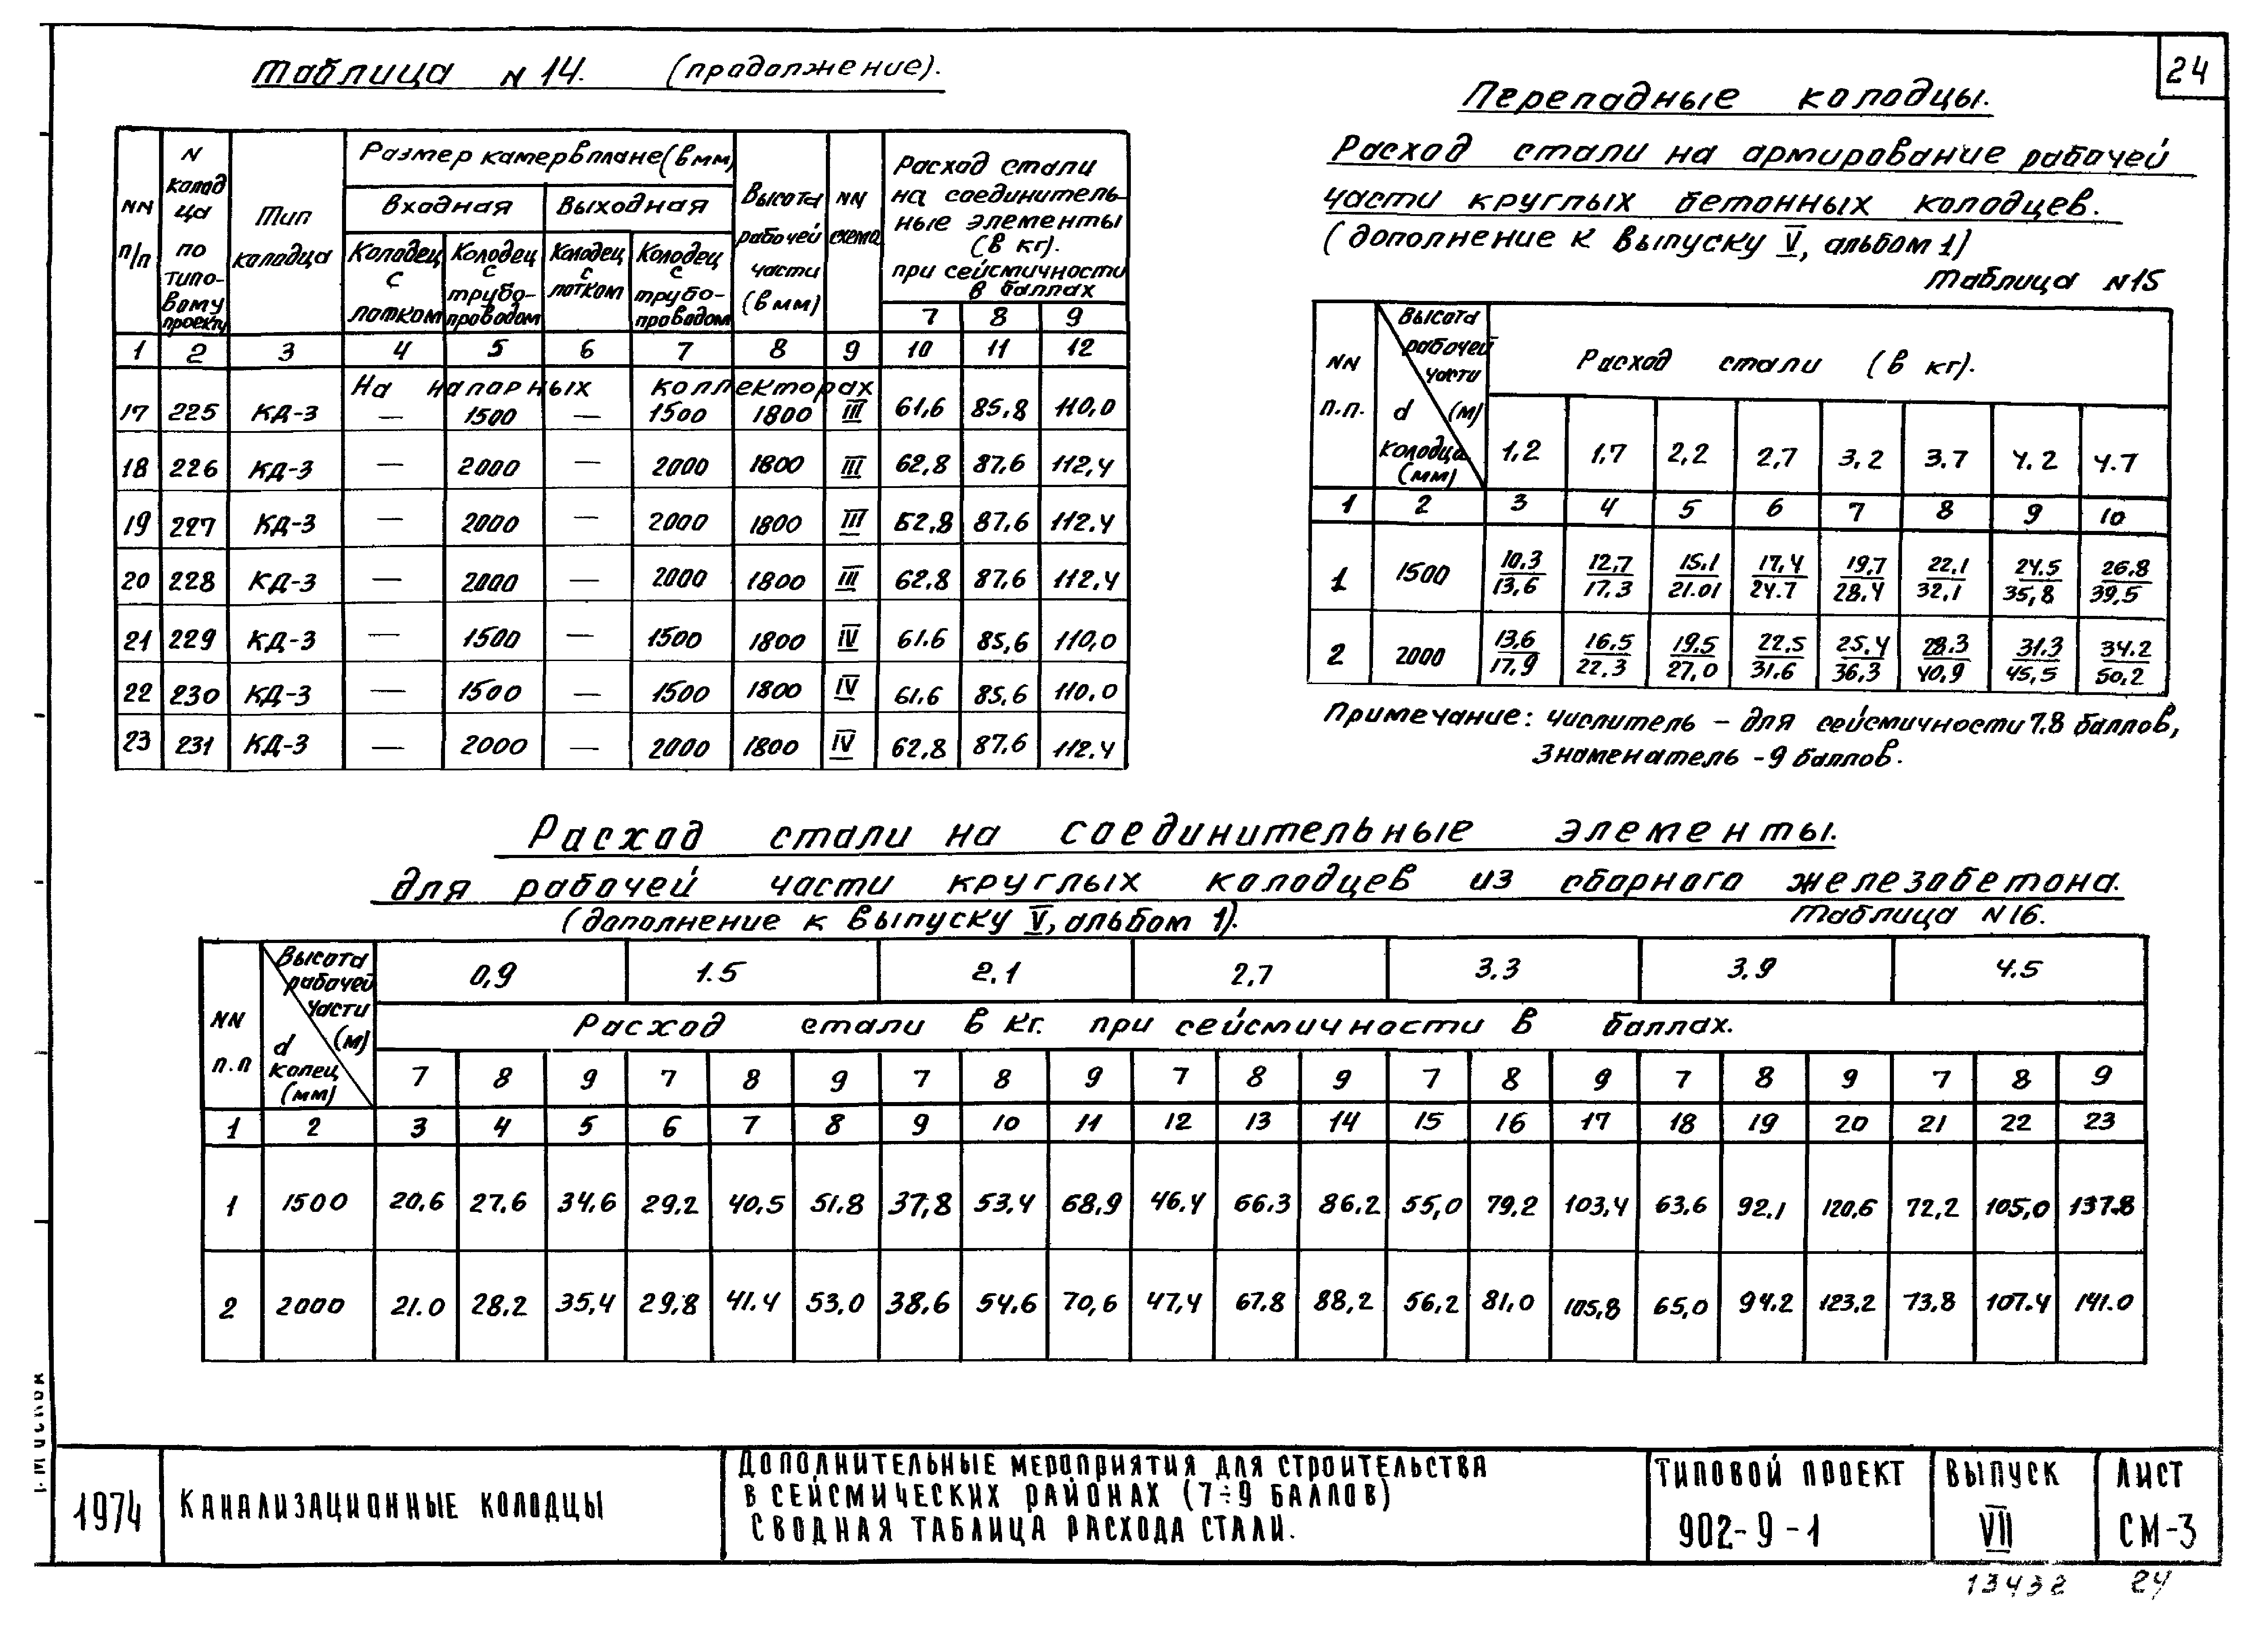 24
Таблица N 14. (продолжение).
NN п/п | N колодца по типовому проекту | Тип колодца | Размер камер в плане (в мм) | Высота рабочей части (в мм) | NN схема | Расход стали на соединительные элементы (в кг). при сейсмичности в баллах
Входная | Выходная
Колодец с лотком | Колодец с трубопроводом | Колодец с лотком | Колодец с трубопроводом | 7 | 8 | 9
1 2 3 4 5 6 7 8 9 10 11 12
На напорных коллекторах
17 225 КД-3 — 1500 — 1500 1800 III 61,6 85,8 110,0
18 226 КД-3 — 2000 — 2000 1800 III 62,8 87,6 112,4
19 227 КД-3 — 2000 — 2000 1800 III 62,8 87,6 112.4
20 228 КД-3 — 2000 — 2000 1800 III 62,8 87,6 112,4
21 229 КД-3 — 1500 — 1500 1800 IV 61.6 85,6 110,0
22 230 КД-3 — 1500 — 1500 1800 IV 61.6 85.6 110.0
23 231 КД-3 — 2000 — 2000 1800 IV 62,8 87,6 112.4
Перепадные колодцы.
Расход стали на армирование рабочей
части круглых бетонных колодцев.
(дополнение к выпуску V, альбом 1)
Таблица N15
NN п.п. | Высота рабочей части (м) d колодца (мм) | Расход стали (в кг).
1,2 1,7 2,2 2,7 3,2 3.7 4.2 4.7
1 2 3 4 5 6 7 8 9 10
1 1500 10.3/13,6 12,7/17.3 15.1/21.01 17,4/24.7 19,7/28.4 22.1/32,1 24.5/35,8 26,8/39,5
2 2000 13,6/17,9 16,5/22.3 19.5/27,0 22,5/31.6 25.4/36,3 28.3/40,9 31.3/45,5 34.2/50,2
Примечание: числитель – для сейсмичности 7.8 баллов,
знаменатель - 9 баллов.
Расход стали на соединительные элементы.
для рабочей части круглых колодцев из сборного железобетона.
(дополнение к выпуску V, альбом 1).
Таблица N16.
NN п.п | Высота рабочей части (м) d колец (мм) | 0,9 | 1.5 | 2.1 | 2,7 | 3.3 | 3.9 | 4.5
Расход стали в кг. при сейсмичности в баллах.
7 8 9 7 8 9 7 8 9 7 8 9 7 8 9 7 8 9 7 8 9
1 2 3 4 5 6 7 8 9 10 11 12 13 14 15 16 17 18 19 20 21 22 23
1 1500 20,6 27.6 34.6 29.2 40,5 51.8 37,8 53.4 68,9 46.4 66.3 86.2 55,0 79.2 103,4 63.6 92.1 120,6 72,2 105,0 137.8
2 2000 21.0 28.2 35,4 29,8 41.4 53,0 38,6 54.6 70,6 47,4 67.8 88,2 56,2 81,0 105,8 65,0 94.2 123,2 73,8 107.4 141.0
1974
Канализационные колодцы
Дополнительные мероприятия для строительства
в сейсмических районах (7÷9 баллов)
Сводная таблица расхода стали.
Типовой проект
902-9-1
Выпуск
VII
Лист
СМ-3
13432 24